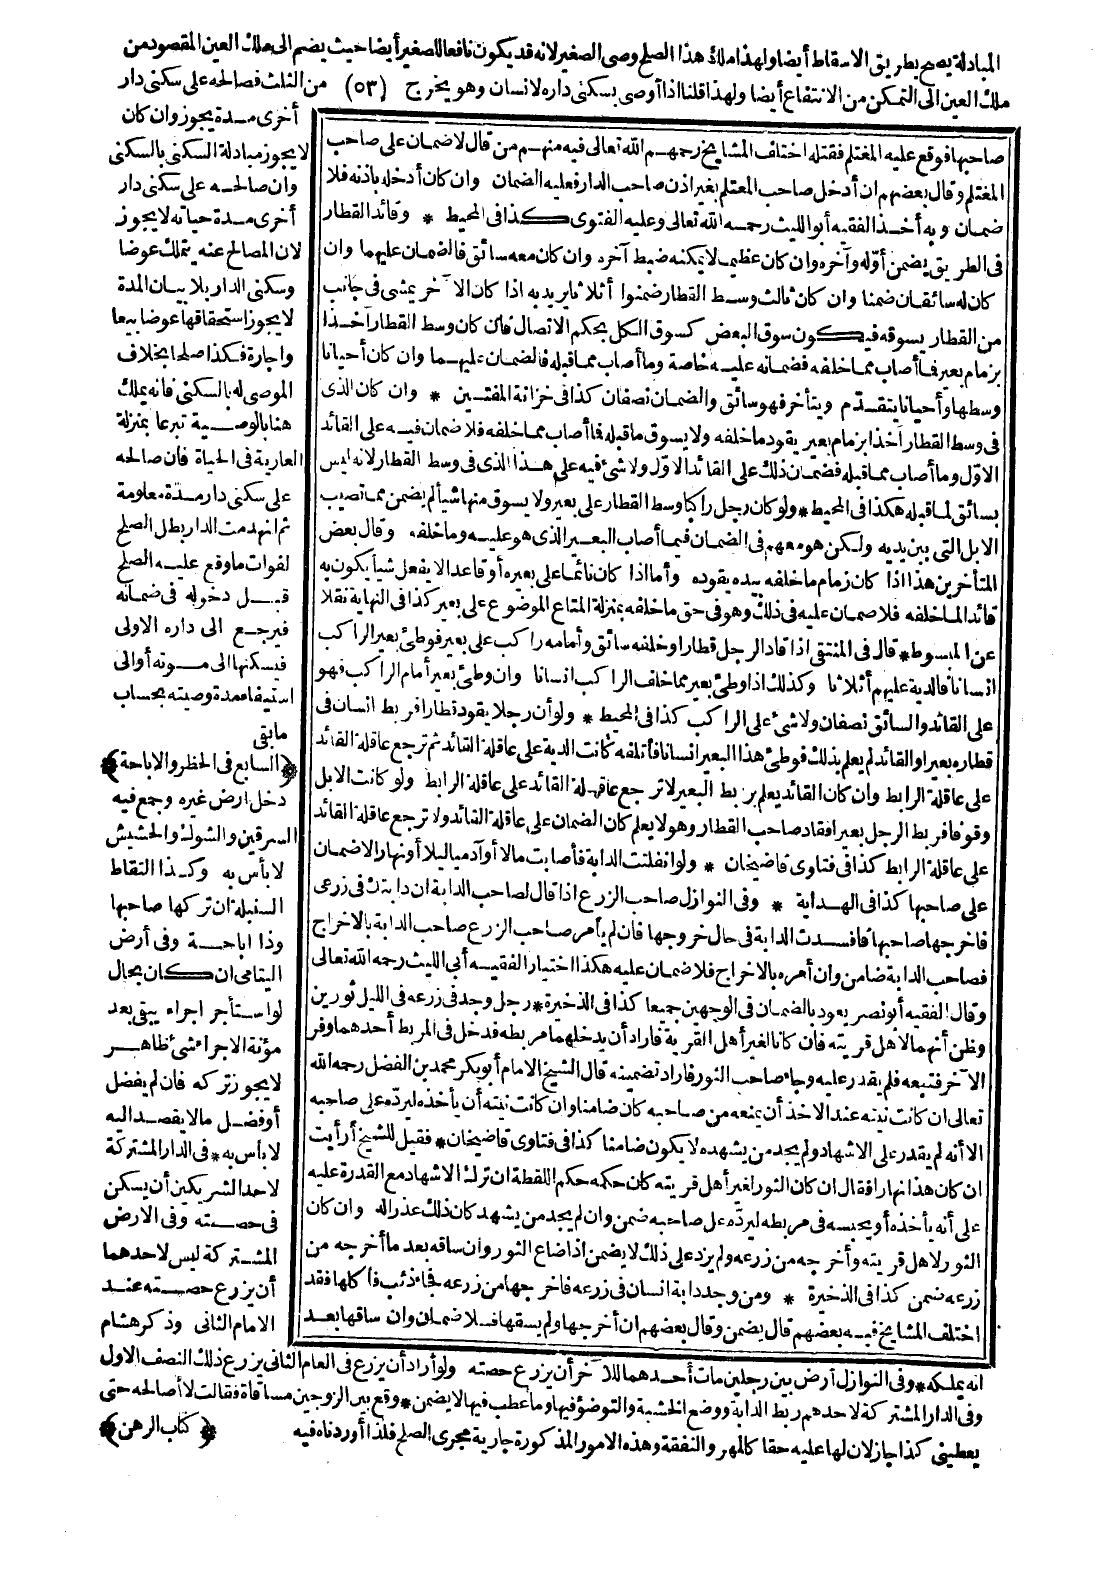 المبادلة يصح بطريق الاسقاط أيضا ولهذا ملك هذا الصلح وصى الصغير لانه قد يكون نافعا للصغير أيضا حيث يضم الى ملك العين المقصود من
ملك العين الى التمكن من الانتفاع أيضا ولهذا قلنا اذا أوصى بسكنى داره لانسان وهو يخرج (٥٣) من الثلث فصالحه على سكنى دار
أخرى مدة يجوز وان كان
لا يجوز مبادلة السكنى بالسكنى
وان صالحه على سكنى دار
أخرى مدة حياته لا يجوز
لان المصالح عنه يتملك عوضا
وسكنى الدار بلا بيان المدة
لا يجوز استحقاقها عوضا بيعا
واجارة فكذا صلحا بخلاف
الموصى له بالسكنى فانه يملك
هنا بالوصية تبرعا بمنزلة
العارية فى الحياة فان صالحه
على سكنى دار مدة معلومة
ثم انهدمت الدار بطل الصلح
لفوات ما وقع عليه الصلح
قبل دخوله فى ضمانه
فيرجع الى داره الاولى
فيسكنها الى موته أو الى
استيفاء مدة وصيته بحساب
ما بقى
﴿السابع فى الحظر والاباحة﴾
دخل ارض غيره وجمع فيه
السرقين والشوك والحشيش
لا بأس به وكذا التقاط
السنبلة ان تركها صاحبها
وذا اباحة وفى أرض
اليتامى ان كان بحال
لو استأجر اجراء يبقى بعد
مؤنة الاجراء شئ ظاهر
لا يجوز تركه فان لم يفضل
أو فضل ما لا يقصد اليه
لا بأس به * فى الدار المشتركة
لاحد الشريكين أن يسكن
فى حصته وفى الارض
المشتركة ليس لاحدهما
أن يزرع حصته عند
الامام الثانى وذكر هشام
صاحبها فوقع عليه المغتلم فقتله اختلف المشايخ رحمهم الله تعالى فيه منهم من قال لا ضمان على صاحب
المغتلم وقال بعضهم ان أدخل صاحب المغتلم بغير اذن صاحب الدار فعليه الضمان وان كان أدخله باذنه فلا
ضمان وبه أخذ الفقيه أبو الليث رحمه الله تعالى وعليه الفتوى كذا فى المحيط * وقائد القطار
فى الطريق يضمن أوله وآخره وان كان عظيما لا يمكنه ضبط آخره وان كان معه سائق فالضمان عليهما وان
كان له سائقان ضمنا وان كان ثالث وسط القطار ضمنوا أثلاثا يريد به اذا كان الآخر يمشى فى جانب
من القطار يسوقه فيكون سوق البعض كسوق الكل بحكم الاتصال فان كان وسط القطار آخذا
بزمام بعير فما أصاب مما خلفه فضمانه عليه خاصة وما أصاب مما قبله فالضمان عليهما وان كان أحيانا
وسطها وأحيانا يتقدم ويتأخر فهو سائق والضمان نصفان كذا فى خزانة المفتين * وان كان الذى
فى وسط القطار آخذا بزمام بعير يقود ما خلفه ولا يسوق ما قبله فما أصاب مما خلفه فلا ضمان فيه على القائد
الاول وما أصاب مما قبله فضمان ذلك على القائد الاول ولا شئ فيه على هذا الذى فى وسط القطار لانه ليس
بسائق لما قبله هكذا فى المحيط * ولو كان رجل راكبا وسط القطار على بعير ولا يسوق منها شيأ لم يضمن مما تصيب
الابل التى بين يديه ولكن هو معهم فى الضمان فيما أصاب البعير الذى هو عليه وما خلفه وقال بعض
المتأخرين هذا اذا كان زمام ما خلفه بيده يقوده وأما اذا كان نائما على بعيره أو قاعدا لا يفعل شيأ يكون به
قائد الما خلفه فلا ضمان عليه فى ذلك وهو فى حق ما خلفه بمنزلة المتاع الموضوع على بعير كذا فى النهاية نقلا
عن المبسوط * قال فى المنتقى اذا قاد الرجل قطارا وخلفه سائق وأمامه راكب على بعير فوطئ بعير الراكب
انسانا فالدية عليهم أثلاثا وكذلك اذا وطئ بعير مما خلف الراكب انسانا وان وطئ بعير أمام الراكب فهو
على القائد والسائق نصفان ولا شئ على الراكب كذا فى المحيط * ولو أن رجلا يقود قطارا فربط انسان فى
قطاره بعيرا والقائد لم يعلم بذلك فوطئ هذا البعير انسانا فأتلفه كانت الدية على عاقلة القائد ثم ترجع عاقلة القائد
على عاقلة الرابط وان كان القائد يعلم بربط البعير لا ترجع عاقلة القائد على عاقلة الرابط ولو كانت الابل
وقوفا فربط الرجل بعيرا فقاد صاحب القطار وهو لا يعلم كان الضمان على عاقلة القائد ولا ترجع عاقلة القائد
على عاقلة الرابط كذا فى فتاوى قاضيخان * ولو انفلتت الدابة فأصابت مالا أو آدميا ليلا أو نهارا لا ضمان
على صاحبها كذا فى الهداية * وفى النوازل صاحب الزرع اذا قال لصاحب الدابة ان دابتك فى زرعى
فاخرجها صاحبها فافسدت الدابة فى حال خروجها فان لم يأمر صاحب الزرع صاحب الدابة بالاخراج
فصاحب الدابة ضامن وان أمره بالاخراج فلا ضمان عليه هكذا اختيار الفقيه أبى الليث رحمه الله تعالى
وقال الفقيه أبو نصر يعود بالضمان فى الوجهين جميعا كذا فى الذخيرة * رجل وجد فى زرعه فى الليل ثورين
وظن أنهما لاهل قريته فان كانا لغير أهل القرية فاراد أن يدخلهما مربطه فدخل فى المربط أحدهما وفر
الآخر فتبعه فلم يقدر عليه وجاء صاحب الثور فاراد تضمينه قال الشيخ الامام أبو بكر محمد بن الفضل رحمه الله
تعالى ان كانت نيته عند الاخذ أن يمنعه من صاحبه كان ضامنا وان كانت نيته أن يأخذه ليرده على صاحبه
الا أنه لم يقدر على الاشهاد ولم يجد من يشهده لا يكون ضامنا كذا فى فتاوى قاضيخان * فقيل للشيخ أرأيت
ان كان هذا نهارا فقال ان كان الثور لغير أهل قريته كان حكمه حكم اللقطة ان ترك الاشهاد مع القدرة عليه
على أنه يأخذه أو يحبسه فى مربطه ليرده على صاحبه ضمن وان لم يجد من يشهد كان ذلك عذرا له وان كان
الثور لاهل قريته وأخرجه من زرعه ولم يزد على ذلك لا يضمن اذا ضاع الثور وان ساقه بعد ما أخرجه من
زرعه ضمن كذا فى الذخيرة * ومن وجد دابة انسان فى زرعه فاخرجها من زرعه فجاء ذئب فأكلها فقد
اختلف المشايخ فيه بعضهم قال يضمن وقال بعضهم ان أخرجها ولم يسقها فلا ضمان وان ساقها بعد
انه يملكه * وفى النوازل أرض بين رجلين مات أحدهما للآخر أن يزرع حصته ولو أراد أن يزرع فى العام الثانى يزرع ذلك النصف الاول
وفى الدار المشتركة لاحدهم ربط الدابة ووضع الخشبة والتوضؤ فيها وما عطب فيها لا يضمن * وقع بين الزوجين مشاقاة فقالت لا أصالحه حتى
يعطينى كذا جاز لان لها عليه حقا كالمهر والنفقة وهذه الامور المذكورة جارية مجرى الصلح فلذا أوردناه فيه ﴿كتاب الرهن﴾